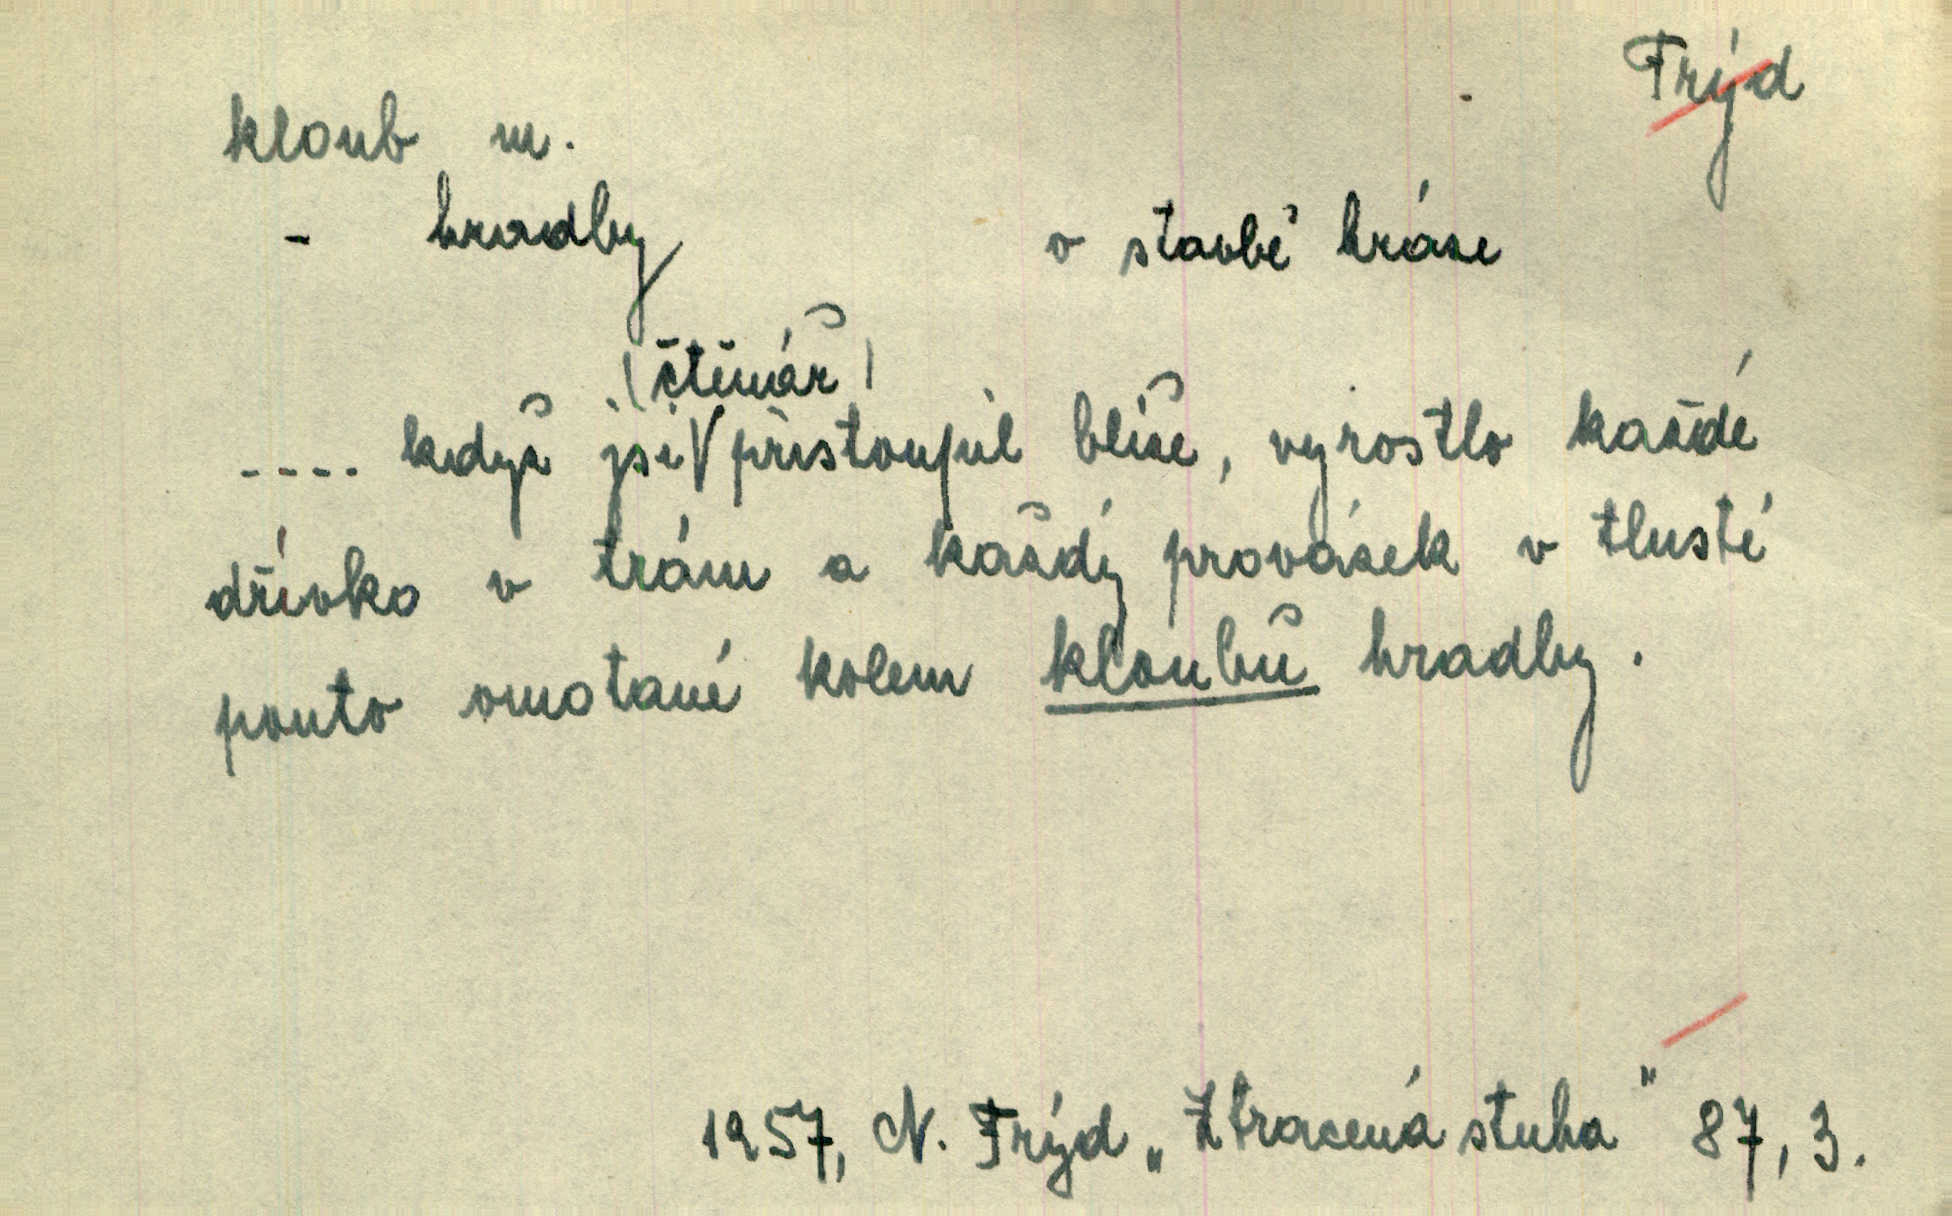 Frýd
kloub m.
- hradby o stavbě hráze
(čtenář)
.... když jsi V přistoupil blíže, vyrostlo každé
dřívko v trám a každý provázek v tlusté
pouto omotané kolem kloubů hradby.
1957, N. Frýd „Ztracená stuha" 87, 3.